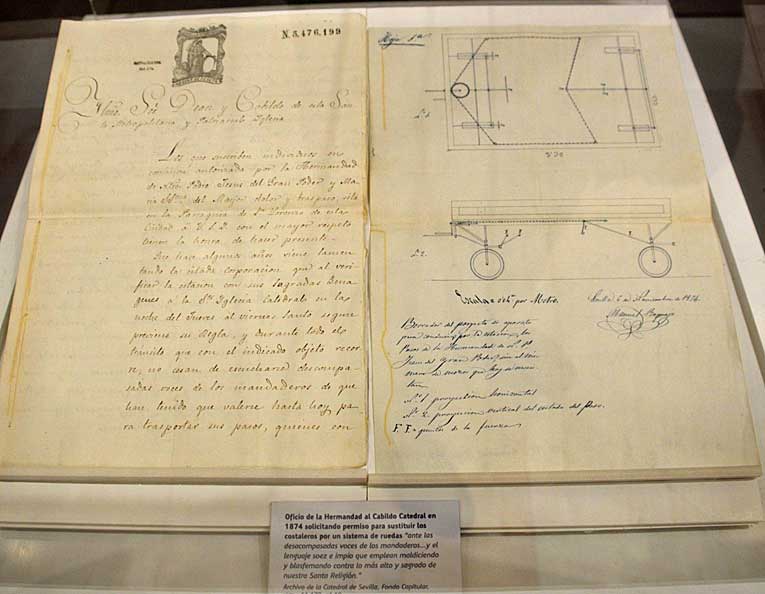 N. 5,476,199
Ylmo. Sor. Dean y Cabildo de esta San
ta Metropolitana y Patriarcal Yglesia
Los que suscriben individuos en
comision autorizada por la Hermandad
de Ntro. Padre Jesus del Gran Poder y Ma
ria Stma. del Mayor dolor y traspaso, sita
en la Parroquia de Sn. Lorenzo de esta
Ciudad á V.S.I. con el mayor respeto
tienen la honra de hacer presente.
Que hace algunos años viene lamen
tando la citada corporacion que al veri
ficar la estacion con sus sagradas Ymá
genes á la Sta. Yglesia Catedral en la
noche del Jueves al viernes Santo segun
previene su Regla, y durante todo el
transito que con el indicado objeto recor
re, no cesan de escucharse descompa
sadas voces de los mandaderos de que
han tenido que valerse hasta hoy pa
ra trasportar sus pasos, quienes con
Hoja 1a.
Escala por Metro.
Sevilla 6 de Noviembre de 1874
Manuel
Borrador del proyecto de aparato
para conducir por la estacion, los
Pasos de la Hermandad de N. P.
Jesus del Gran Poder, sin el
de mozos que hoy
No. 1 proyeccion horizontal
No. 2. proyeccion vertical del costado del Paso.
F. F. puntos de la fuerza
Oficio de la Hermandad al Cabildo Catedral en
1874 solicitando permiso para sustituir los
costaleros por un sistema de ruedas "ante las
desacompasadas voces de los mandaderos...y el
lenguaje soez e impío que emplean maldiciendo
y blasfemando contra lo más alto y sagrado de
nuestra Santa Religión."
Archivo de la Catedral de Sevilla, Fondo Capitular,